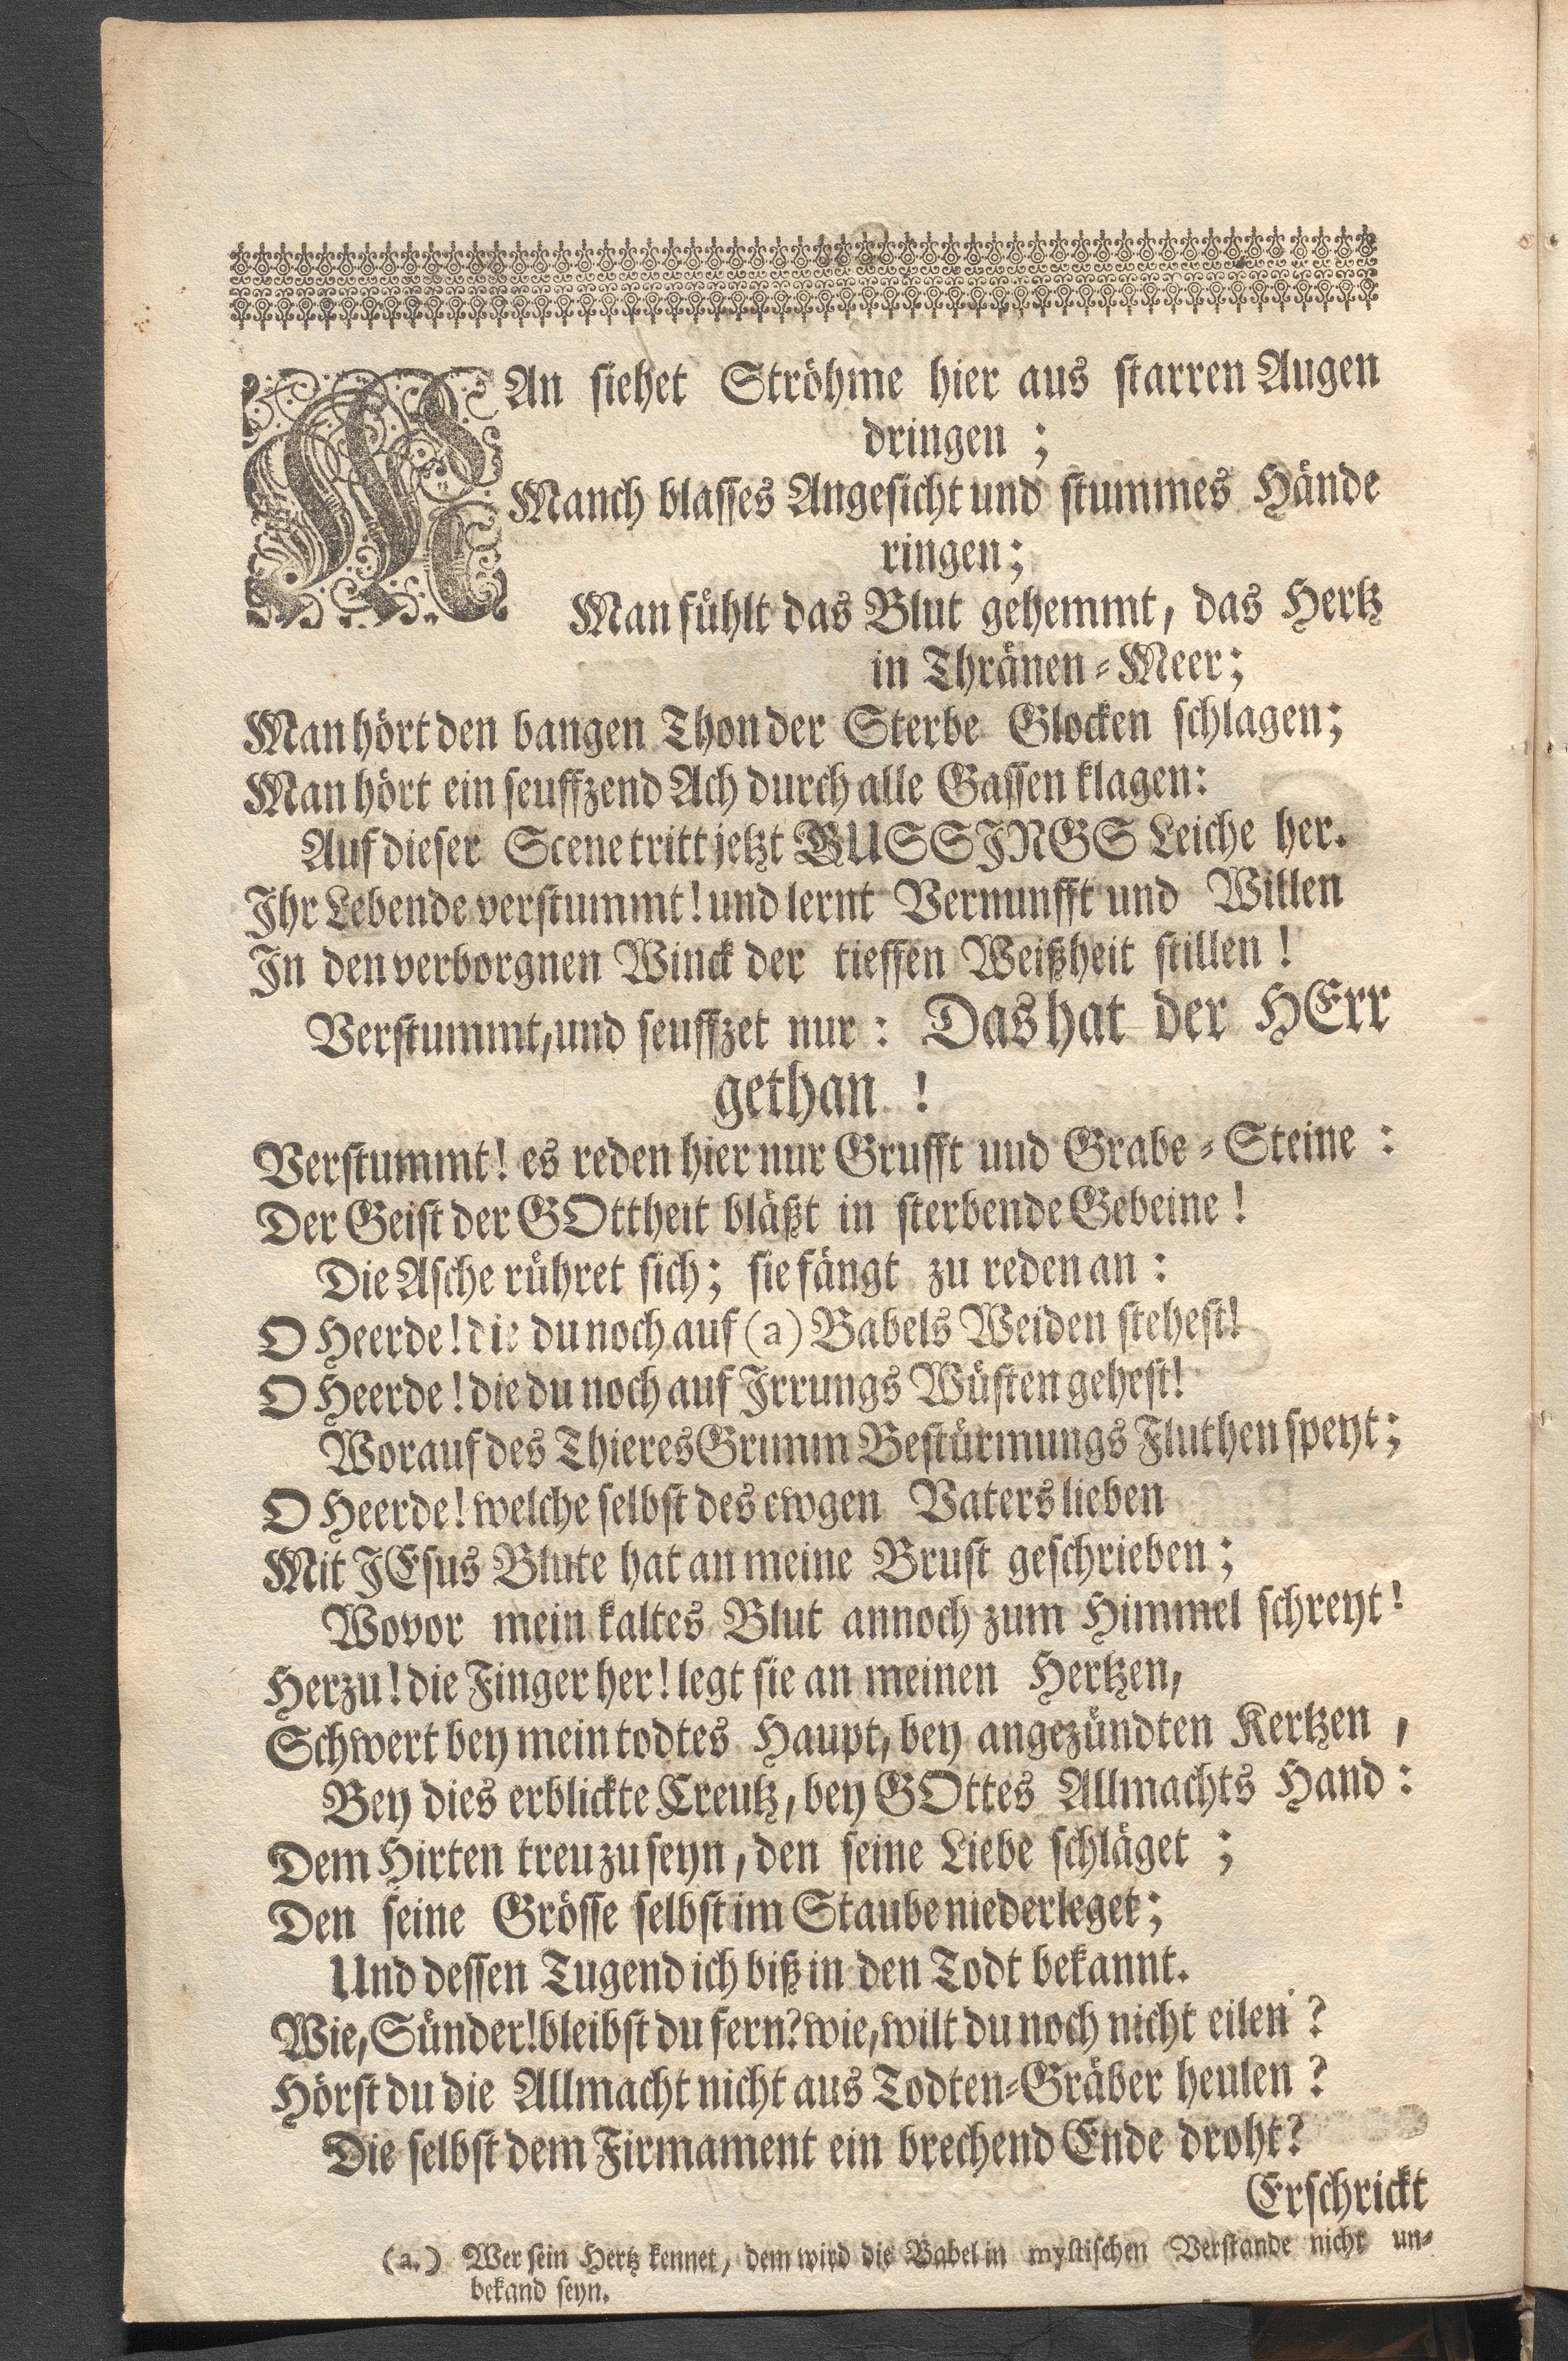 MAn siehet Ströhme hier aus starren Augen
dringen ;
Manch blasses Angesicht und stummes Hände
ringen;
Man fühlt das Blut gehemmt, das Hertz
in Thränen-Meer;
Man hört den bangen Thon der Sterbe Glocken schlagen;
Man hört ein seuffzend Ach durch alle Gassen klagen:
Auf dieser Scene tritt jetzt BUSSINGS Leiche her.
Ihr Lebende verstummt! und lernt Vernunfft und Willen
In den verborgnen Winck der tieffen Weißheit stillen !
Verstummt, und seuffzet nur : Das hat der HErr
gethan !
Verstummt! es reden hier nur Grufft und Grabe-Steine :
Der Geist der GOttheit bläßt in sterbende Gebeine !
Die Asche rühret sich; sie fängt zu reden an :
O Heerde! die du noch auf (a) Babels Weiden stehest!
O Heerde! die du noch auf Irrungs Wüsten gehest!
Worauf des Thieres Grimm Bestürmungs Fluthen speyt;
O Heerde! welche selbst des ewgen Vaters lieben
Mit JEsus Blute hat an meine Brust geschrieben;
Wovor mein kaltes Blut annoch zum Himmel schreyt!
Herzu! die Finger her! legt sie an meinen Hertzen,
Schwert bey mein todtes Haupt, bey angezündten Kertzen ,
Bey dies erblickte Creutz, bey GOttes Allmachts Hand :
Dem Hirten treu zu seyn, den seine Liebe schläget ;
Den seine Grösse selbst im Staube niederleget;
Und dessen Tugend ich biß in den Todt bekannt.
Wie, Sünder! bleibst du fern? wie, wilt du noch nicht eilen ?
Hörst du die Allmacht nicht aus Todten-Gräber heulen ?
Die selbst dem Firmament ein brechend Ende droht?
Erschrickt
(a.) Wer sein Hertz kennet, dem wird die Babel in mystischen Verstande nicht un-
bekand seyn.